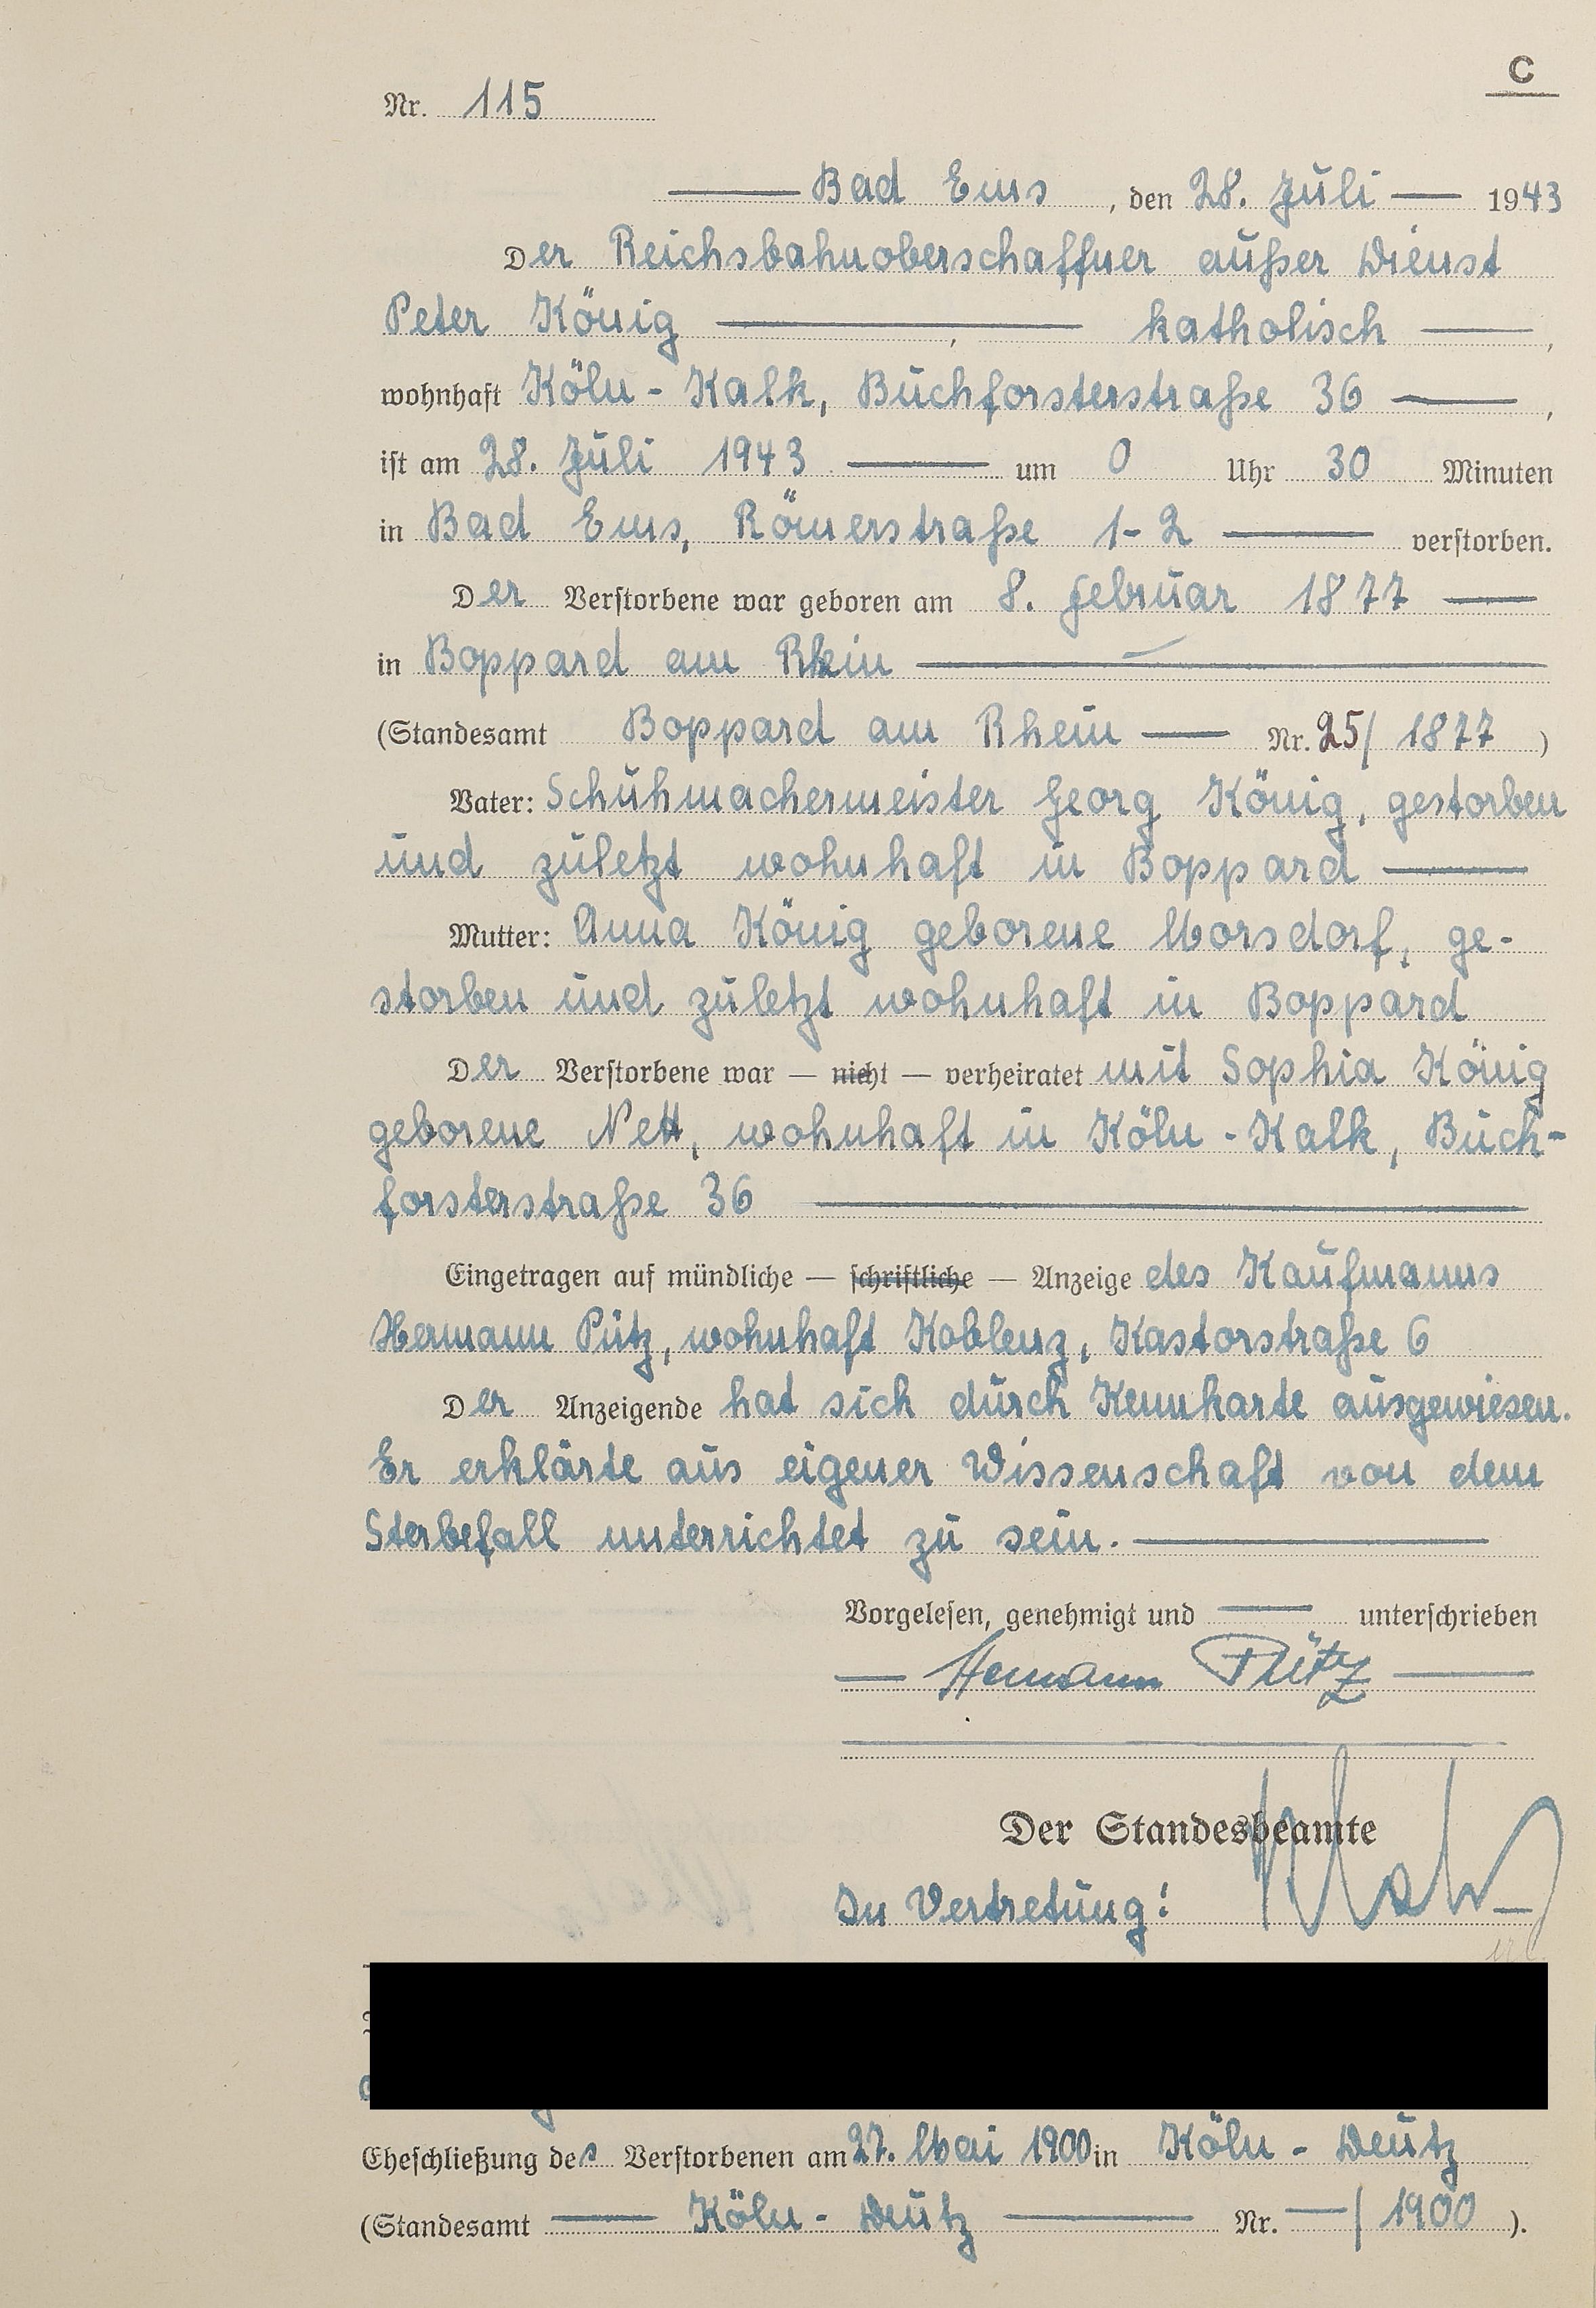 C
Nr. 115
Bad Ems, den 28. Juli 1943
Der Reichsbahnoberschaffner außer Dienst
Peter König, katholisch,
wohnhaft Köln-Kalk, Buchforsterstraße 36,
ist am 28. Juli 1943 um 0 Uhr 30 Minuten
in Bad Ems, Römerstraße 1-2 verstorben.
Der Verstorbene war geboren am 8. Februar 1877
in Boppard am Rhein
(Standesamt Boppard am Rhein Nr. 25/1877)
Vater: Schuhmachermeister Georg König, gestorben
und zuletzt wohnhaft in Boppard
Mutter: Anna König geborene Morsdorf, ge-
storben und zuletzt wohnhaft in Boppard
Der Verstorbene war — nicht — verheiratet mit Sophia König
geborene Nett, wohnhaft in Köln-Kalk, Buch-
forsterstraße 36
Eingetragen auf mündliche — schriftliche — Anzeige des Kaufmanns
Hermann Pütz, wohnhaft Koblenz, Kastorstraße 6
Der Anzeigende hat sich durch Kennkarte ausgewiesen.
Er erklärte aus eigener Wissenschaft von dem
Sterbefall unterrichtet zu sein.
Vorgelesen, genehmigt und unterschrieben
Hermann Pütz
Der Standesbeamte
In Vertretung:
Eheschließung des Verstorbenen am 27. Mai 1900 in Köln-Deutz
(Standesamt Köln-Deutz Nr. —/1900).